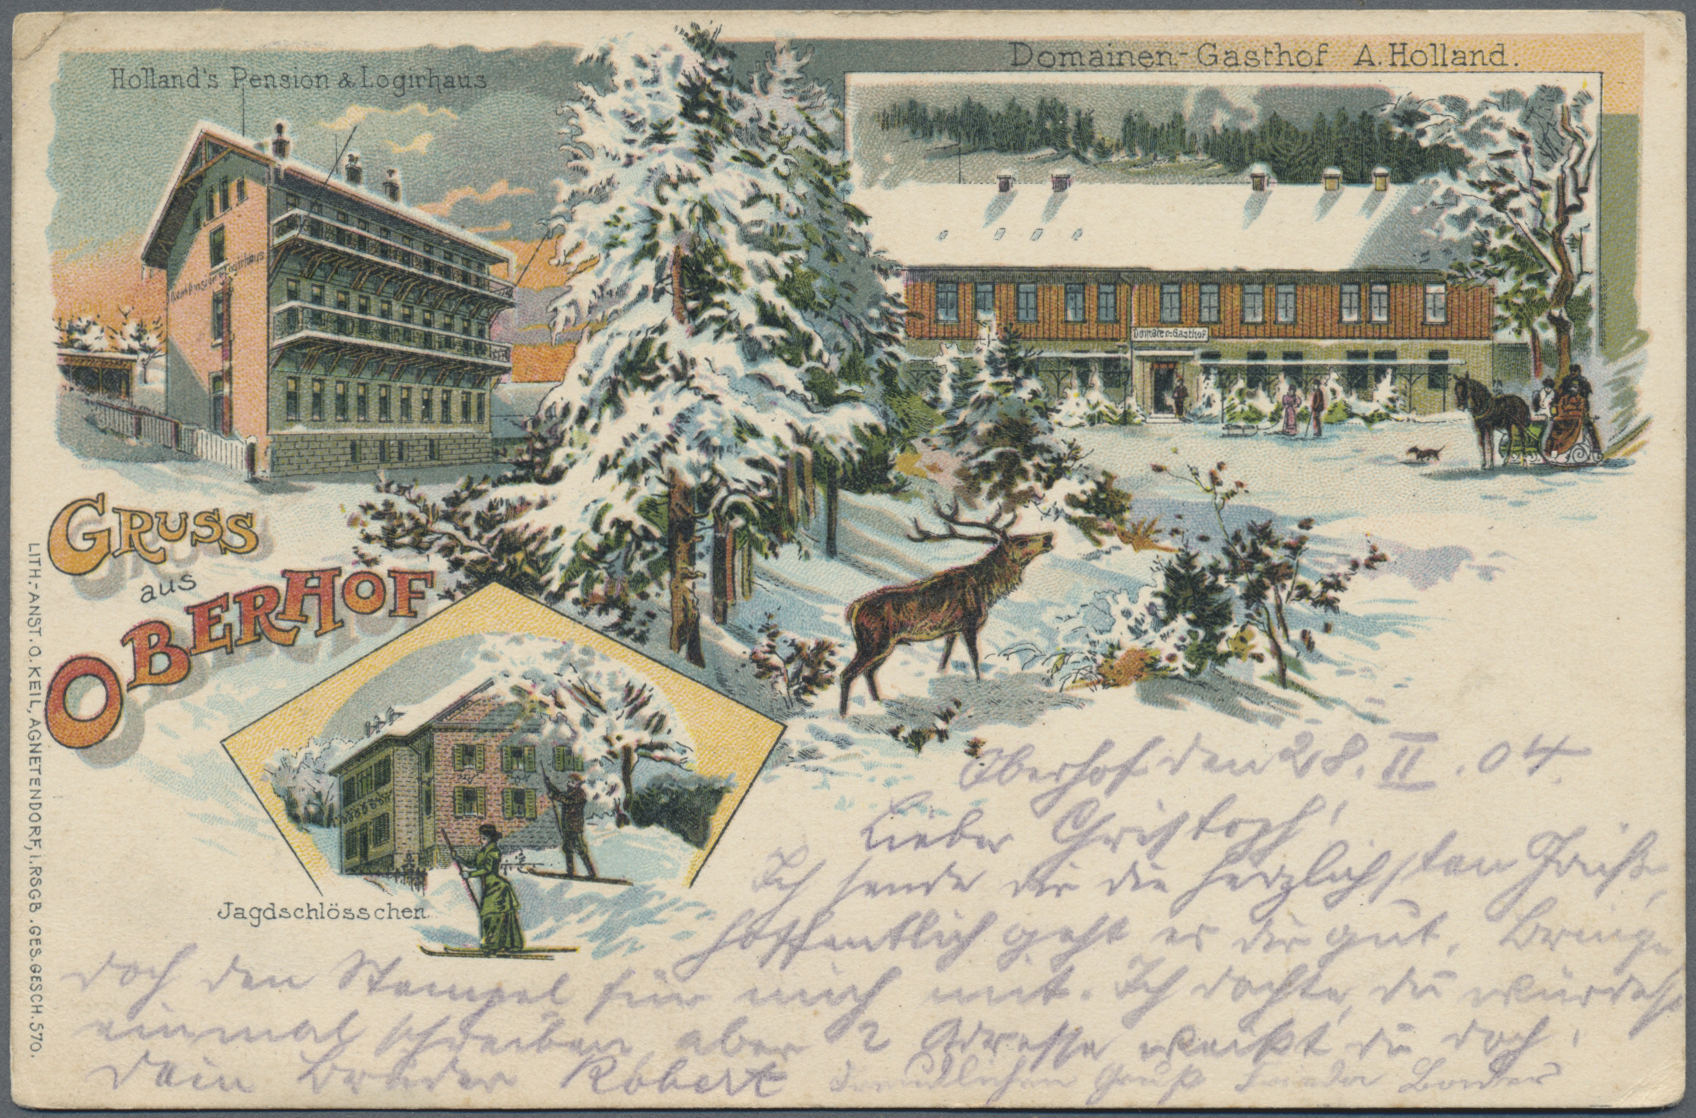 Holland's Pension & Logirhaus
Domainen-Gasthof A. Holland.
Logirhaus
Domänen-Gasthof
GRUSS
aus
OBERHOF
Jagdschlösschen
LITH.-ANST. O. KEIL, AGNETENDORF, i. RSGB. GES. GESCH. 570.
Oberhof den 28. II. 04.
Lieber Christoph!
Ich sende dir die herzlichsten Grüße,
hoffentlich geht es dir gut. Bringe
doch den Stempel für mich mit. Ich dachte, du würdest
einmal schreiben aber Adresse weißt du doch!
Dein Bruder Robert
Freundlichen Gruß